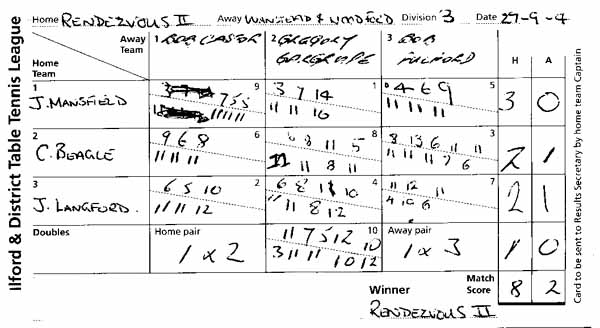 Ilford & District Table Tennis League
Home RENDEZVOUS II Away WANSTEAD & WOODFORD Division 3 Date 27-9-4
Away Team 1 BOB CASTOR 2 GREGORY 3 BOB FULFORD H A
Home Team
1 J. MANSFIELD 9 7 5 5 11 11 11 1 3 7 14 11 11 16 5 4 6 9 11 11 11 3 0
2 C. BEAGLE 6 9 6 8 11 11 11 8 8 11 5 11 11 8 11 3 8 13 6 11 11 11 11 11 7 6 2 1
3 J. LANGFORD. 2 6 5 10 11 11 12 4 6 8 11 10 11 8 12 7 11 12 11 4 10 6 2 1
Doubles Home pair 1 x 2 10 11 7 5 12 10 3 11 11 10 12 Away pair 1 x 3 1 0
Winner Match Score 8 2
RENDEZVOUS II
Card to be sent to Results Secretary by home team Captain